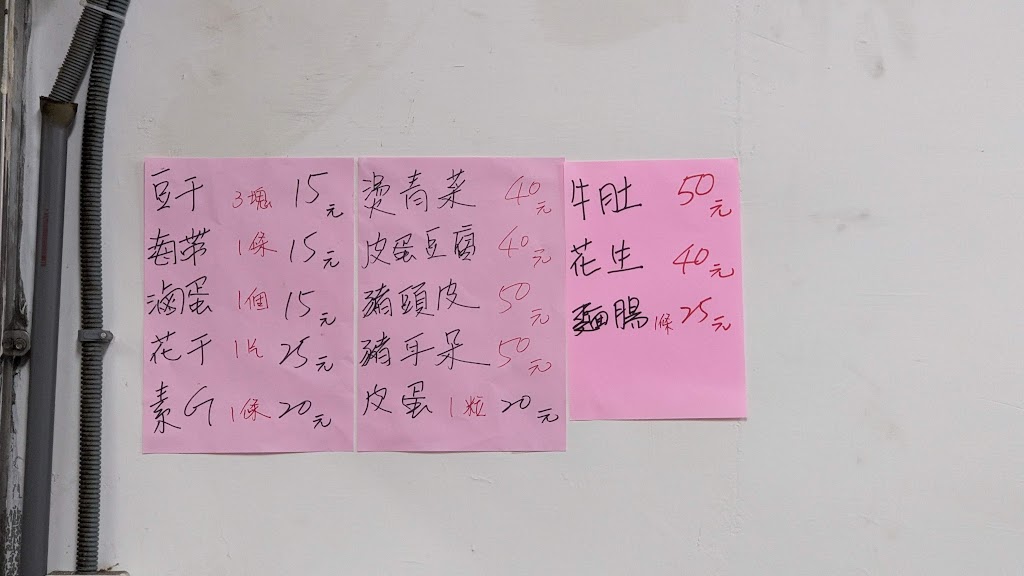 豆干 3塊 15元
海带 1條 15元
滷蛋 1個 15元
花干 1片 25元
素G 1條 20元
燙青菜 40元
皮蛋豆腐 40元
豬頭皮 50元
豬耳朵 50元
皮蛋 1粒 20元
牛肚 50元
花生 40元
麵腸 1條 25元